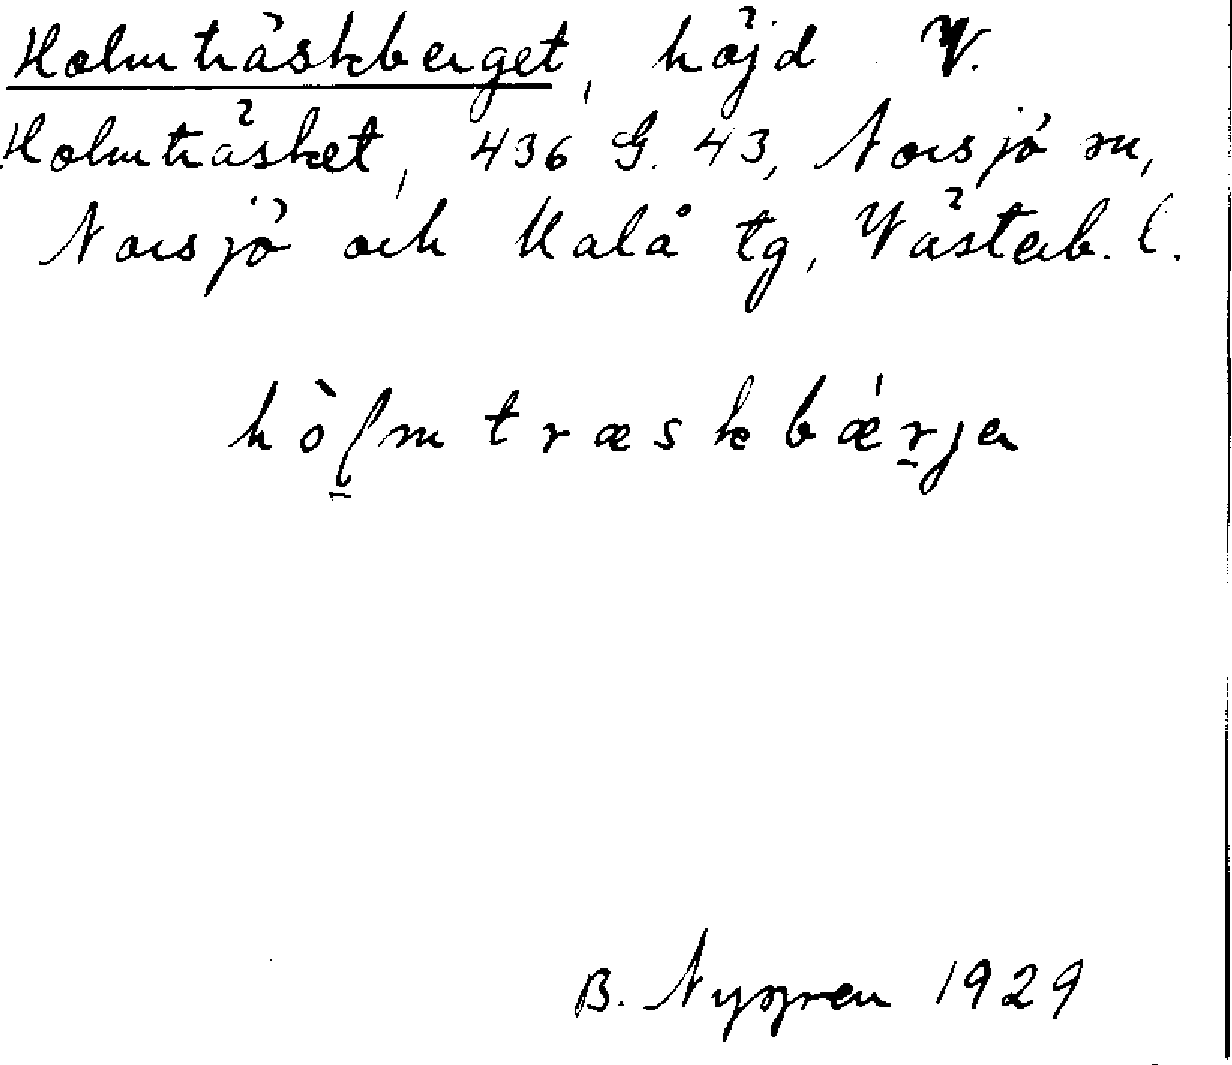 Holmträskberget, höjd V.
Holmträsket, 436 G. 43, Norsjö sn,
Norsjö och Malå tg, Västerb. l.
hòl̠mtræskbǽr̠jen
B. Nygren 1929